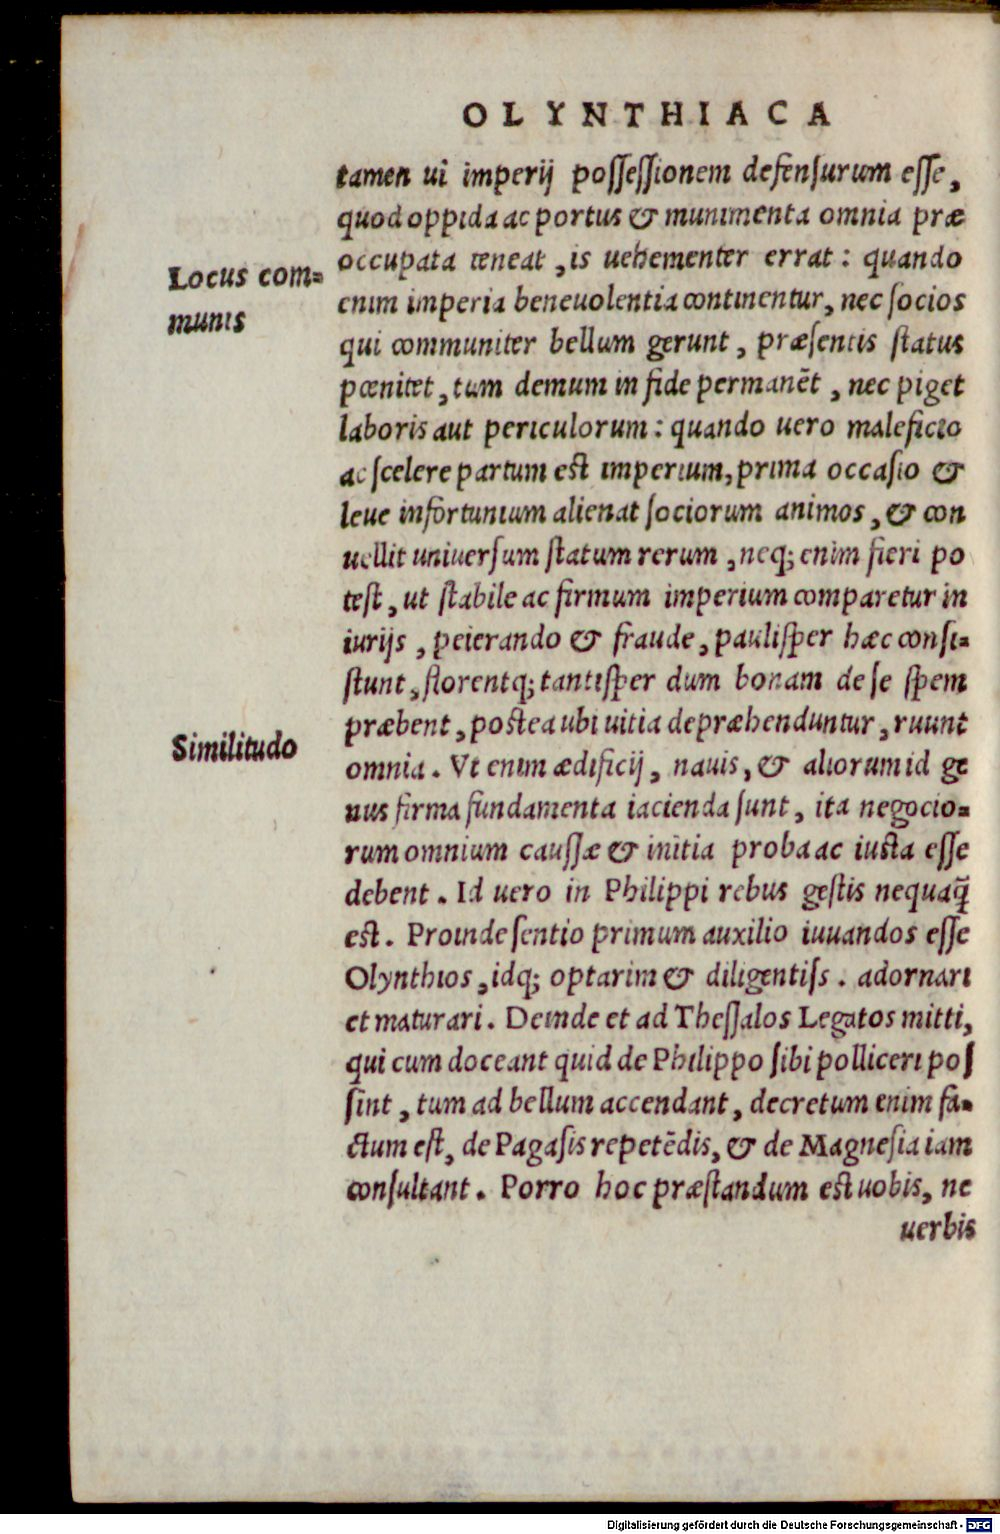 OLYNTHIACA
tamen uì imperij possessionem defensurum esse,
quod oppida ac portus & munimenta omnia præ
Locus com=
munis
occupata teneat, is uehementer errat: quando
enim imperia beneuolentia continentur, nec socios
qui communiter bellum gerunt, præsentis status
pœnitet, tum demum in fide permanẽt, nec piget
laboris aut periculorum: quando uero maleficio
ac scelere partum est imperium, prima occasio &
leue infortunium alienat sociorum animos, & con
uellit uniuersum statum rerum, neq; enim fieri po
test, ut stabile ac firmum imperium comparetur in
iurijs, peierando & fraude, paulisper hæc consi=
stunt, florentq; tantisper dum bonam de se spem
Similitudo
præbent, postea ubi uitia depræhenduntur, ruunt
omnia. Vt enim ædificij, nauis, & aliorum id ge
nus firma fundamenta iacienda sunt, ita negocio=
rum omnium caussæ & initia proba ac iusta esse
debent. Id uero in Philippi rebus gestis nequaq̃
est. Proinde sentio primum auxilio iuuandos esse
Olynthios, idq; optarim & diligentiss. adornari
et maturari. Deinde et ad Thessalos Legatos mitti,
qui cum doceant quid de Philippo sibi polliceri pos
sint, tum ad bellum accendant, decretum enim fa=
ctum est, de Pagasis repetẽdis, & de Magnesia iam
consultant. Porro hoc præstandum est uobis, ne
uerbis
Digitalisierung gefördert durch die Deutsche Forschungsgemeinschaft - DFG